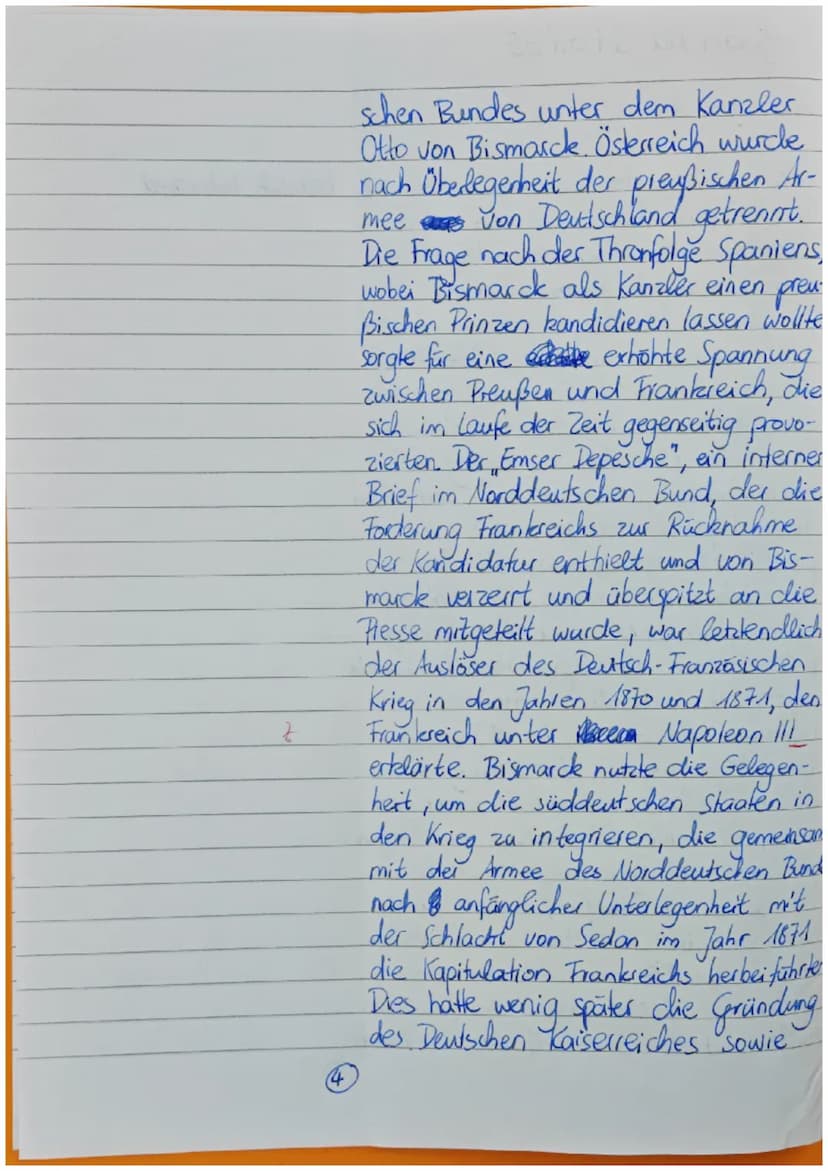 schen Bundes unter dem Kanzler
Otto von Bismarck. Österreich wurde
nach Überlegenheit der preußischen Ar-
mee von Deutschland getrennt.
Die Frage nach der Thronfolge Spaniens,
wobei Bismarck als Kanzler einen preu-
ßischen Prinzen kandidieren lassen wollte
sorgte für eine erhöhte Spannung
zwischen Preußen und Frankreich, die
sich im Laufe der Zeit gegenseitig provo-
zierten. Der „Emser Depesche", ein interner
Brief im Norddeutschen Bund, der die
Forderung Frankreichs zur Rücknahme
der Kandidatur enthielt und von Bis-
marck verzerrt und überspitzt an die
Presse mitgeteilt wurde, war letztendlich
der Auslöser des Deutsch-Französischen
Krieg in den Jahren 1870 und 1871, den
z Frankreich unter Napoleon III
erklärte. Bismarck nutzte die Gelegen-
heit, um die süddeutschen Staaten in
den Krieg zu integrieren, die gemeinsam
mit der Armee des Norddeutschen Bund
nach anfänglicher Unterlegenheit mit
der Schlacht von Sedan im Jahr 1871
die Kapitulation Frankreichs herbeiführte
Dies hatte wenig später die Gründung
des Deutschen Kaiserreiches sowie
4